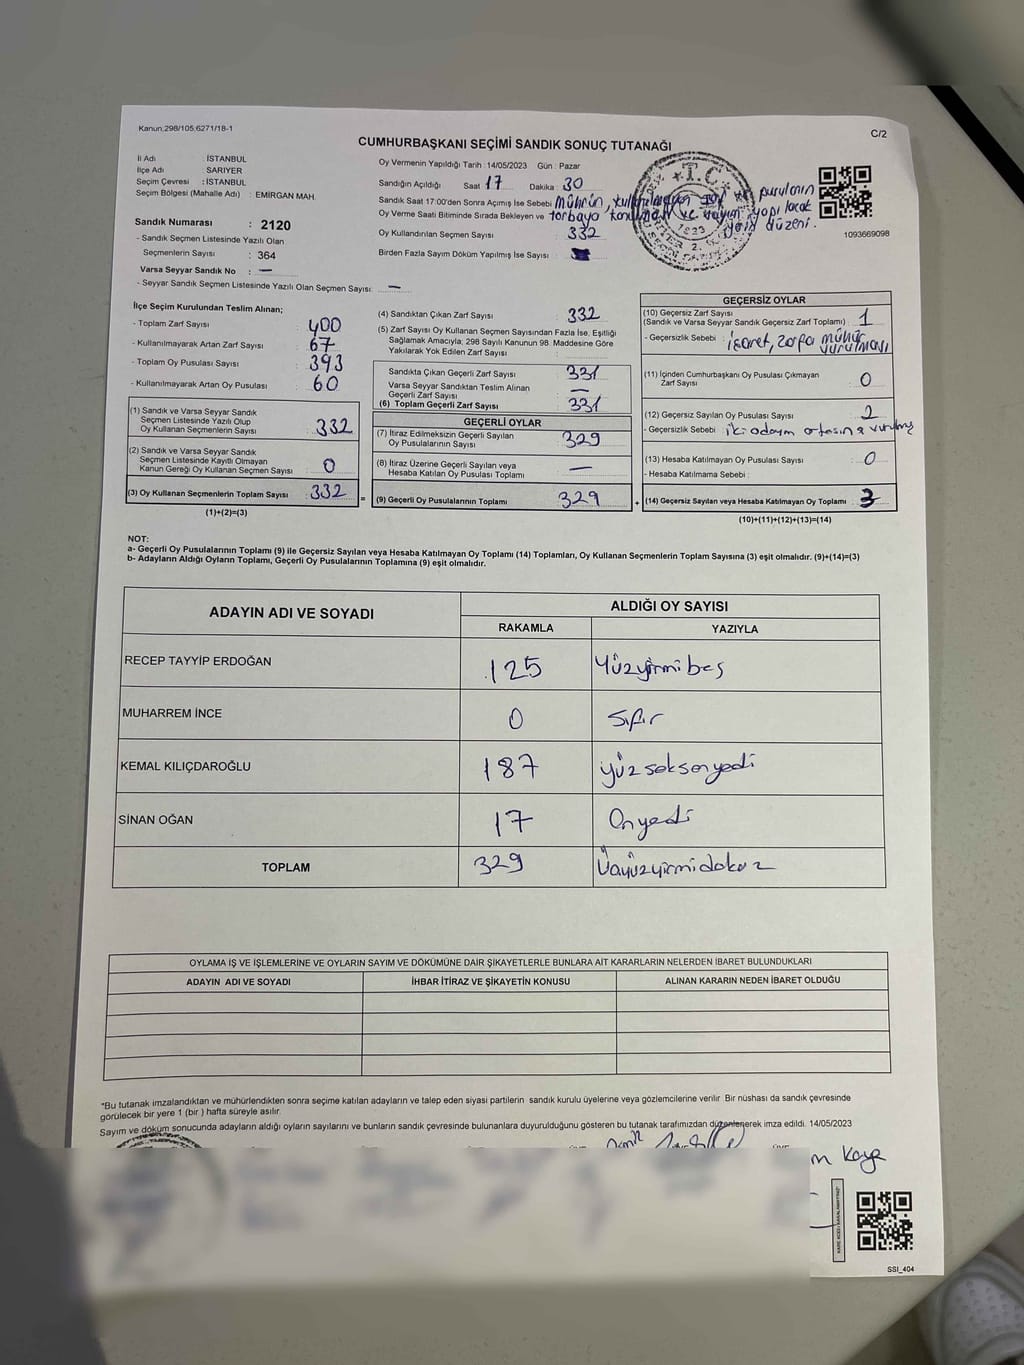 Kanun;298/105,6271/18-1
C/2
CUMHURBAŞKANI SEÇİMİ SANDIK SONUÇ TUTANAĞI
İl Adı : İSTANBUL
İlçe Adı : SARIYER
Seçim Çevresi : İSTANBUL
Seçim Bölgesi (Mahalle Adı) : EMİRGAN MAH.
Sandık Numarası : 2120
- Sandık Seçmen Listesinde Yazılı Olan
Seçmenlerin Sayısı : 364
Varsa Seyyar Sandık No : —
- Seyyar Sandık Seçmen Listesinde Yazılı Olan Seçmen Sayısı: —
Oy Vermenin Yapıldığı Tarih : 14/05/2023 Gün : Pazar
Sandığın Açıldığı Saat 17 Dakika : 30
Sandık Saat 17:00'den Sonra Açımış İse Sebebi Mührün, pusulanın
Oy Verme Saati Bitiminde Sırada Bekleyen ve torbaya ve sayım yapılacak
yerin düzeni.
Oy Kullandırılan Seçmen Sayısı : 332
Birden Fazla Sayım Döküm Yapılmış İse Sayısı :
T.C.
1923
1093669098
İlçe Seçim Kurulundan Teslim Alınan;
- Toplam Zarf Sayısı : 400
- Kullanılmayarak Artan Zarf Sayısı : 67
- Toplam Oy Pusulası Sayısı : 393
- Kullanılmayarak Artan Oy Pusulası : 60
(1) Sandık ve Varsa Seyyar Sandık
Seçmen Listesinde Yazılı Olup
Oy Kullanan Seçmenlerin Sayısı : 332
(2) Sandık ve Varsa Seyyar Sandık
Seçmen Listesinde Kayıtlı Olmayan
Kanun Gereği Oy Kullanan Seçmen Sayısı : 0
(3) Oy Kullanan Seçmenlerin Toplam Sayısı : 332
(1)+(2)=(3)
(4) Sandıktan Çıkan Zarf Sayısı : 332
(5) Zarf Sayısı Oy Kullanan Seçmen Sayısından Fazla İse, Eşitliği
Sağlamak Amacıyla; 298 Sayılı Kanunun 98. Maddesine Göre
Yakılarak Yok Edilen Zarf Sayısı :
Sandıkta Çıkan Geçerli Zarf Sayısı : 331
Varsa Seyyar Sandıktan Teslim Alınan
Geçerli Zarf Sayısı : —
(6) Toplam Geçerli Zarf Sayısı : 331
GEÇERLİ OYLAR
(7) İtiraz Edilmeksizin Geçerli Sayılan
Oy Pusulalarının Sayısı : 329
(8) İtiraz Üzerine Geçerli Sayılan veya
Hesaba Katılan Oy Pusulası Toplamı : —
= (9) Geçerli Oy Pusulalarının Toplamı : 329
GEÇERSİZ OYLAR
(10) Geçersiz Zarf Sayısı
(Sandık ve Varsa Seyyar Sandık Geçersiz Zarf Toplamı) : 1
- Geçersizlik Sebebi : işaret, zarfa mühür
vurulması
(11) İçinden Cumhurbaşkanı Oy Pusulası Çıkmayan
Zarf Sayısı : 0
(12) Geçersiz Sayılan Oy Pusulası Sayısı : 2
- Geçersizlik Sebebi : iki adayın ortasına vurulmuş
(13) Hesaba Katılmayan Oy Pusulası Sayısı : 0
- Hesaba Katılmama Sebebi :
+ (14) Geçersiz Sayılan veya Hesaba Katılmayan Oy Toplamı : 3
(10)+(11)+(12)+(13)=(14)
NOT:
a- Geçerli Oy Pusulalarının Toplamı (9) ile Geçersiz Sayılan veya Hesaba Katılmayan Oy Toplamı (14) Toplamları, Oy Kullanan Seçmenlerin Toplam Sayısına (3) eşit olmalıdır. (9)+(14)=(3)
b- Adayların Aldığı Oyların Toplamı, Geçerli Oy Pusulalarının Toplamına (9) eşit olmalıdır.
ADAYIN ADI VE SOYADI
ALDIĞI OY SAYISI
RAKAMLA YAZIYLA
RECEP TAYYİP ERDOĞAN 125 Yüzyirmibeş
MUHARREM İNCE 0 Sıfır
KEMAL KILIÇDAROĞLU 187 yüzseksenyedi
SİNAN OĞAN 17 Onyedi
TOPLAM 329 Üçyüzyirmidokuz
OYLAMA İŞ VE İŞLEMLERİNE VE OYLARIN SAYIM VE DÖKÜMÜNE DAİR ŞİKAYETLERLE BUNLARA AİT KARARLARIN NELERDEN İBARET BULUNDUKLARI
ADAYIN ADI VE SOYADI İHBAR İTİRAZ VE ŞİKAYETİN KONUSU ALINAN KARARIN NEDEN İBARET OLDUĞU
*Bu tutanak imzalandıktan ve mühürlendikten sonra seçime katılan adayların ve talep eden siyasi partilerin sandık kurulu üyelerine veya gözlemcilerine verilir. Bir nüshası da sandık çevresinde
görülecek bir yere 1 (bir) hafta süreyle asılır.
Sayım ve döküm sonucunda adayların aldığı oyların sayılarını ve bunların sandık çevresinde bulunanlara duyurulduğunu gösteren bu tutanak tarafımızdan düzenlenerek imza edildi. 14/05/2023
Kaya
SSI_404